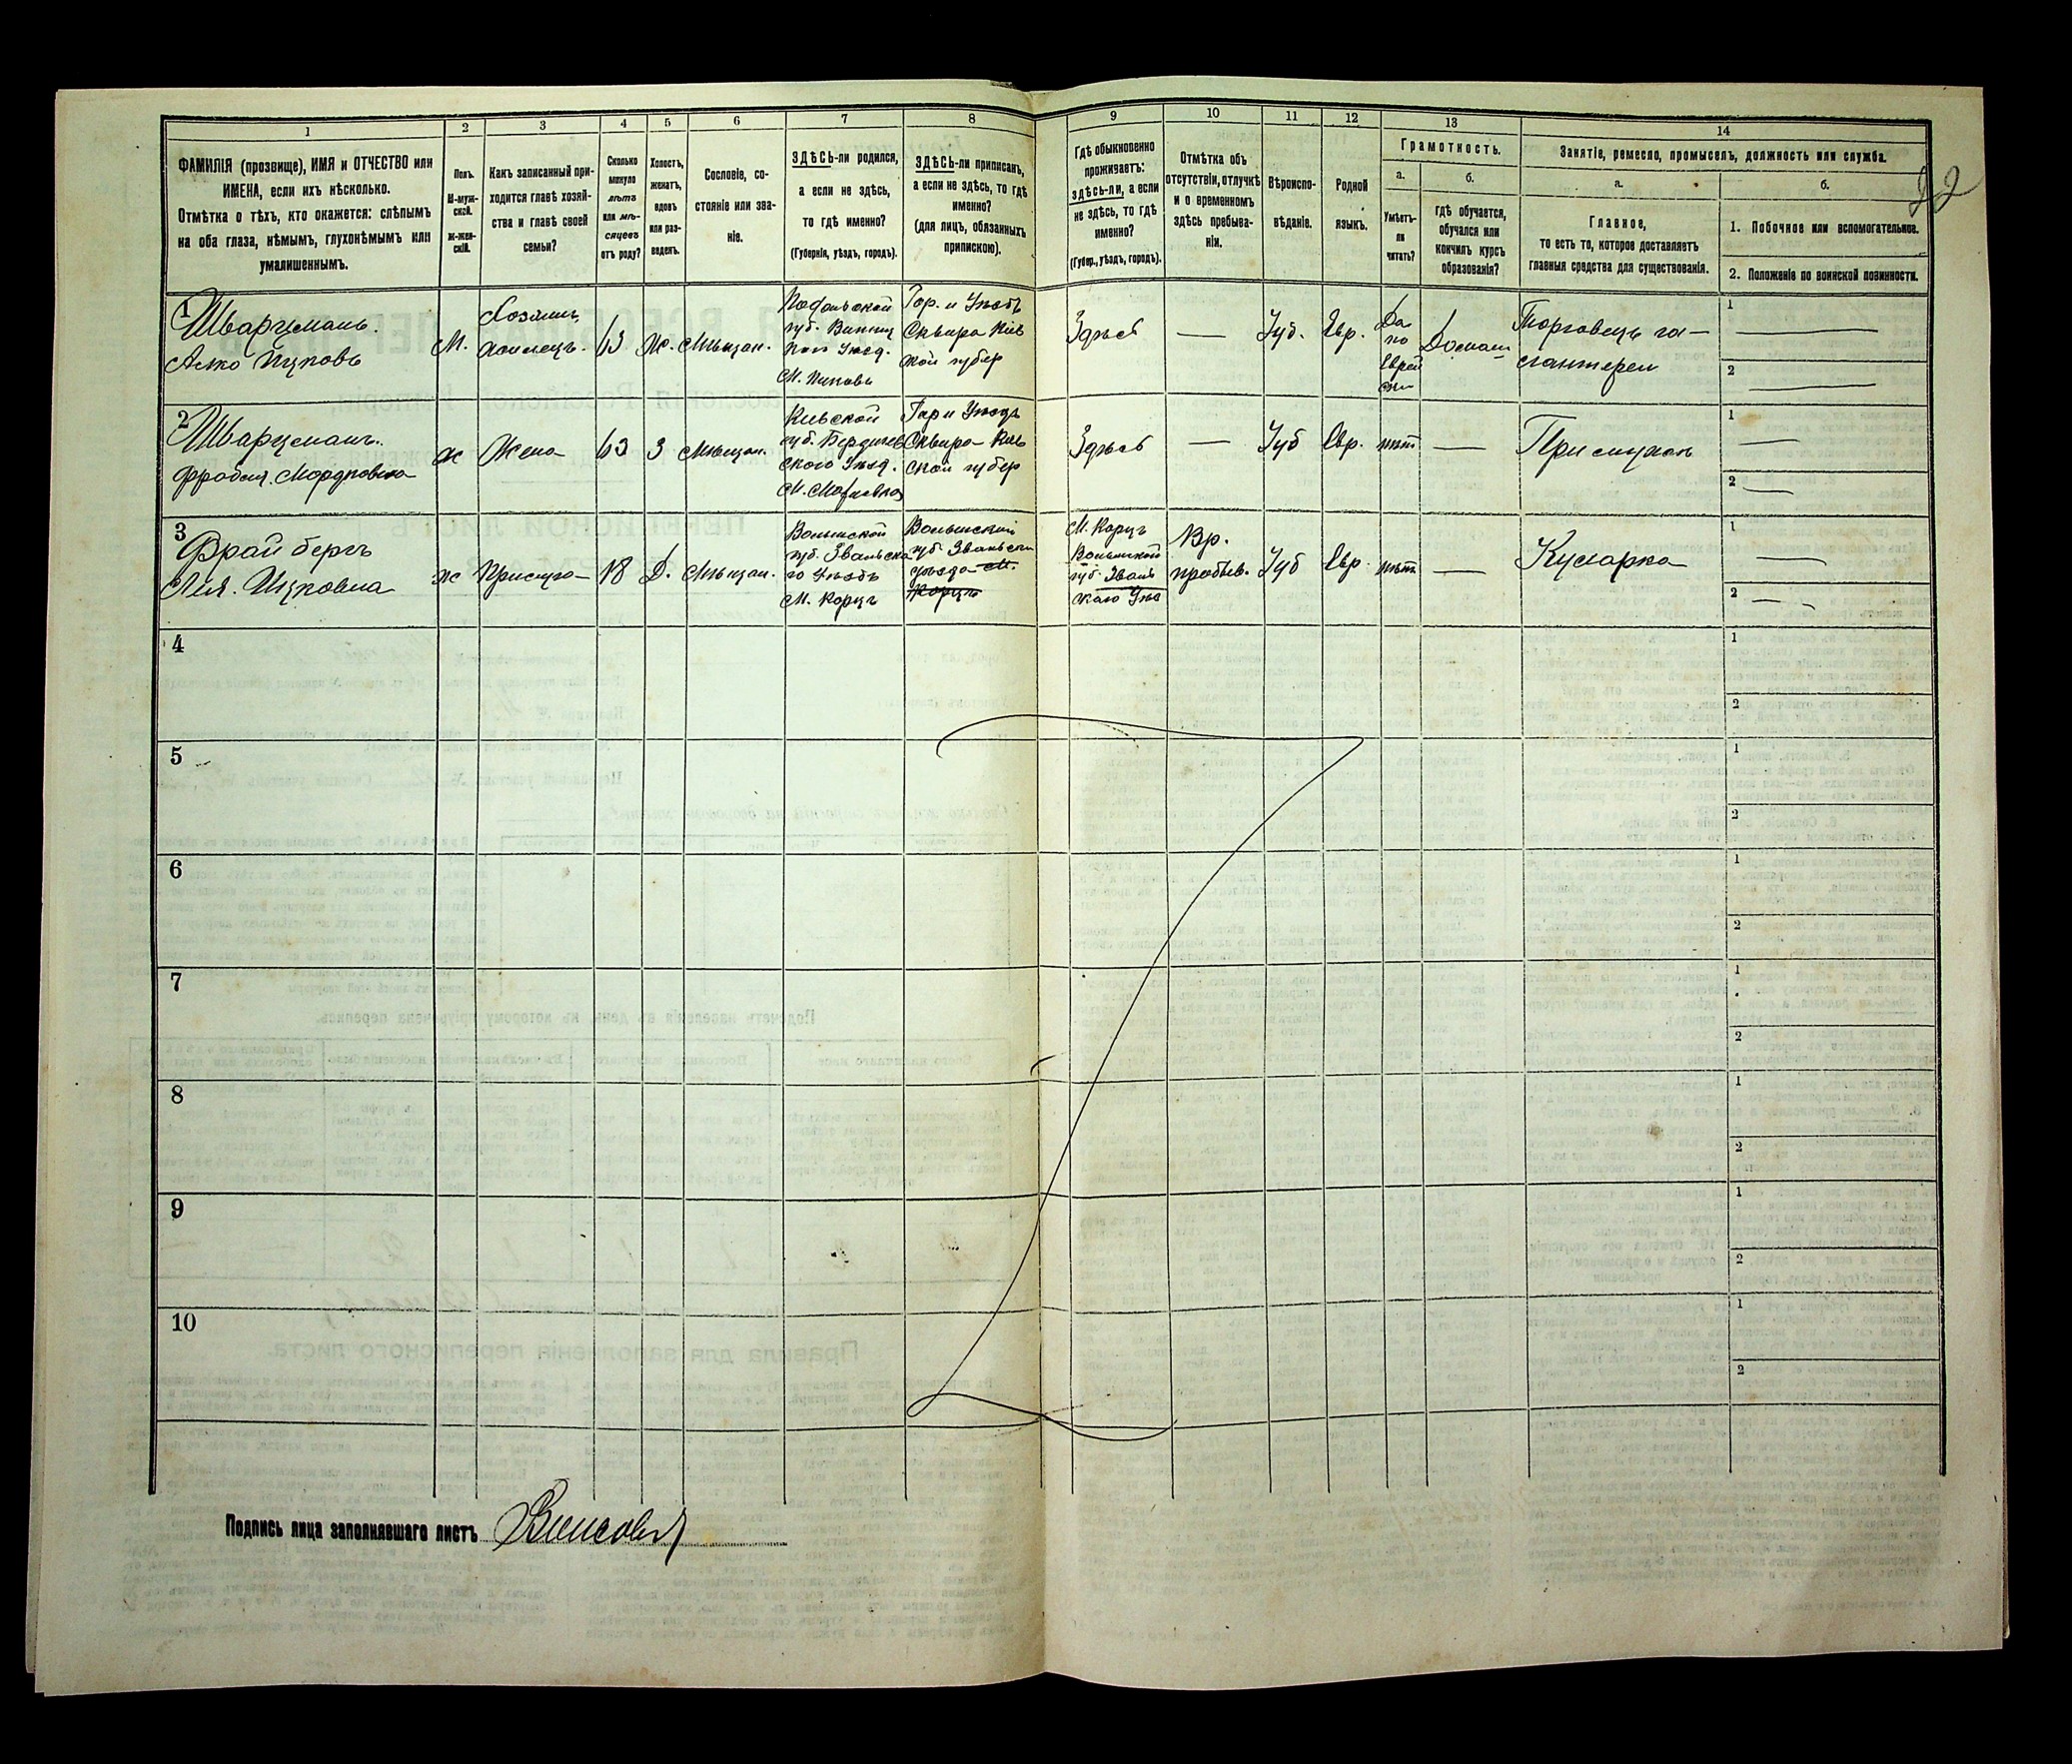 1
2
3
4
5
6
7
8
9
10
11
12
13
14
ФАМИЛІЯ (прозвище), ИМЯ и ОТЧЕСТВО или
ИМЕНА, если ихъ нѣсколько.
Отмѣтка о тѣхъ, кто окажется: слѣпымъ
на оба глаза, нѣмымъ, глухонѣмымъ или
умалишеннымъ.
Полъ.
М-муж-
ской.
Ж-жен-
скій.
Какъ записанный при-
ходится главѣ хозяй-
ства и главѣ своей
семьи?
Сколько
минуло
лѣтъ
или мѣ-
сяцевъ
отъ роду?
Холостъ,
женатъ,
вдовъ
или раз-
веденъ.
Сословіе, со-
стояніе или зва-
ніе.
ЗДѢСЬ-ли родился,
а если не здѣсь,
то гдѣ именно?
(Губернія, уѣздъ, городъ).
ЗДѢСЬ-ли приписанъ,
а если не здѣсь, то гдѣ
именно?
(для лицъ, обязанныхъ
припискою).
Гдѣ обыкновенно
проживаетъ:
здѣсь-ли, а если
не здѣсь, то гдѣ
именно?
(Губер., уѣздъ, городъ).
Отмѣтка объ
отсутствіи, отлучкѣ
и о временномъ
здѣсь пребыва-
ніи.
Вѣроиспо-
вѣданіе.
Родной
языкъ.
Грамотность.
а.
Умѣетъ-
ли
читать?
б.
гдѣ обучается,
обучался или
кончилъ курсъ
образованія?
Занятіе, ремесло, промыселъ, должность или служба.
а.
Главное,
то есть то, которое доставляетъ
главныя средства для существованія.
б.
1. Побочное или вспомогательное.
2. Положеніе по воинской повинности.
1
Шварцманъ.
Ицковъ
М.
Хозяинъ
63
Ж.
Мѣщан.
Подольской
губ. Винниц
М. Пиковъ
Гор. и Уѣздъ
Сквира Кіев
ской губер
Здѣсь
—
Іуд.
Евр.
Да
по
Еврей
ски
Домаш
Торговецъ га-
лантереи
1 —
2 —
2
Шварцманъ.
Мордковна
ж
Жена
63
З
Мѣщан.
Кіевской
губ. Бердичев
скаго Уѣзд.
Гор и Уѣздъ
Сквира Кіев
ской губер
Здѣсь
—
Іуд
Евр.
нѣт
—
При мужѣ
1 —
2 —
3
Фрайбергъ
Лея. Ицковна
ж
Прислуга
18
Д.
Мѣщан.
Волынской
губ. Звягельска
го Уѣздъ
М. Корцъ
Волынской
губ. Звягельск
уѣзда М.
Корцъ
М. Корцъ
Волынской
губ. Звягель
скаго Уѣз
Вр.
пребыв.
Іуд
Евр.
нѣт
—
Кухарка
1 —
2 —
4
1
2
5
1
2
6
1
2
7
1
2
8
1
2
9
1
2
10
1
2
Подпись лица заполнявшаго листъ